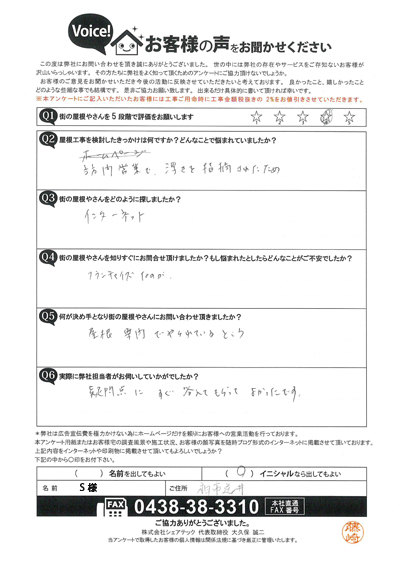 Voice! お客様の声をお聞かせください
この度は弊社にお問い合わせを頂き誠にありがとうございました。世の中には弊社の存在やサービスをご存知ないお客様が
沢山いらっしゃいます。その方たちに弊社をよく知って頂くためのアンケートにご協力頂けないでしょうか。
お客様のご意見をお聞かせいただき今後の活動に反映させていただきたいと考えております。良かったこと、嬉しかったこと
どのような些細な事でも結構です。是非ご協力お願い致します。出来るだけ具体的に書いて頂ければ幸いです。
※本アンケートにご記入いただいたお客様には工事ご用命時に工事金額税抜きの2%をお値引きさせていただきます。
Q1 街の屋根やさんを5段階で評価をお願いします ☆ ☆ ☆ ☆ ☆
Q2 屋根工事を検討したきっかけは何ですか?どんなことで悩まれていましたか?
ホームページ
訪問営業で、浮きを指摘されたため
Q3 街の屋根やさんをどのように探しましたか?
インターネット
Q4 街の屋根やさんを知りすぐにお問合せ頂けましたか?もし悩まれたとしたらどんなことがご不安でしたか?
フランチャイズなのが
Q5 何が決め手となり街の屋根やさんにお問い合わせ頂きましたか?
屋根専門でやられているところ
Q6 実際に弊社担当者がお伺いしていかがでしたか?
疑問点にすぐ答えてもらってよかったです。
※弊社は広告宣伝費を極力かけない為にホームページだけを頼りにお客様への営業活動を行っております。
本アンケート用紙またはお客様宅の調査風景や施工状況、お客様の顔写真を随時ブログ形式のインターネットに掲載させて頂いております。
上記内容をインターネットや印刷物に掲載させて頂いてもよろしいでしょうか?
下記の中から〇印をお付け下さい。
( ) 名前を出してもよい ( 〇 ) イニシャルなら出してもよい
名前 S様 ご住所
FAX 0438-38-3310 本社直通 FAX番号
ご協力ありがとうございました。
株式会社シェアテック 代表取締役 大久保 誠二
当アンケートで取得したお客様の個人情報は関係法規に基づき厳正に管理いたします。